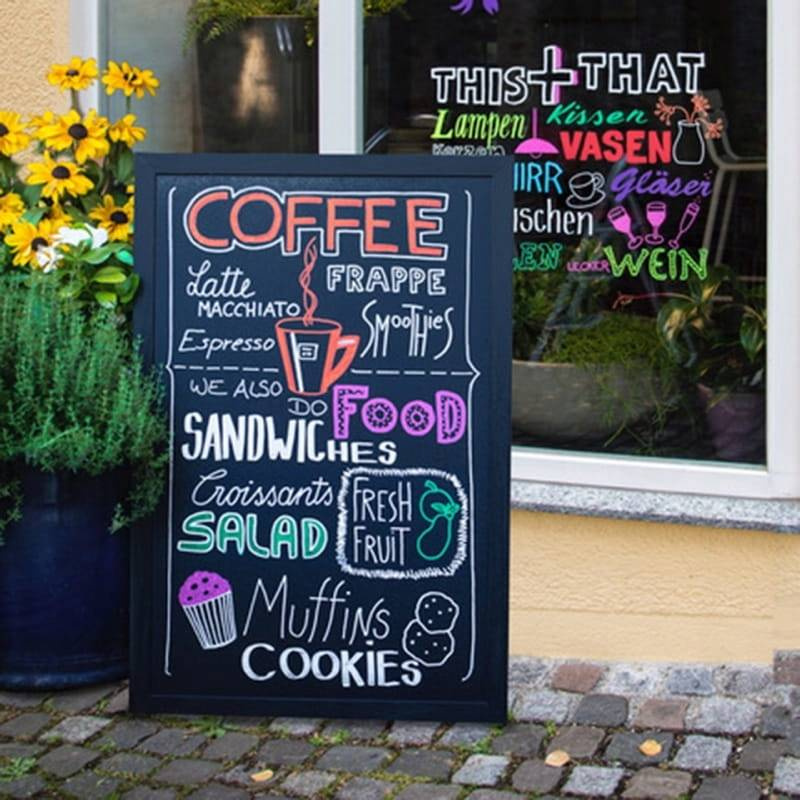 THIS + THAT
Lampen Kissen
VASEN
Gläser
WEIN
COFFEE
Latte MACCHIATO
FRAPPE
Espresso
SMOOTHiES
WE ALSO DO FOOD
SANDWICHES
Croissants
SALAD
FRESH FRUIT
Muffins
COOKIES